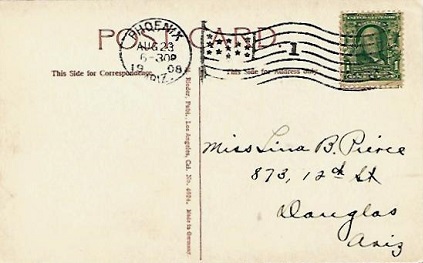 POST CARD
PHOENIX
AUG 23
6-30P
1908
ARIZ.
1
This Side for Correspondence.
This Side for Address only.
M. Rieder, Publ., Los Angeles, Cal. No. 4024. Made in Germany.
Miss Lina B. Pierce
873, 12th St
Douglas
Ariz